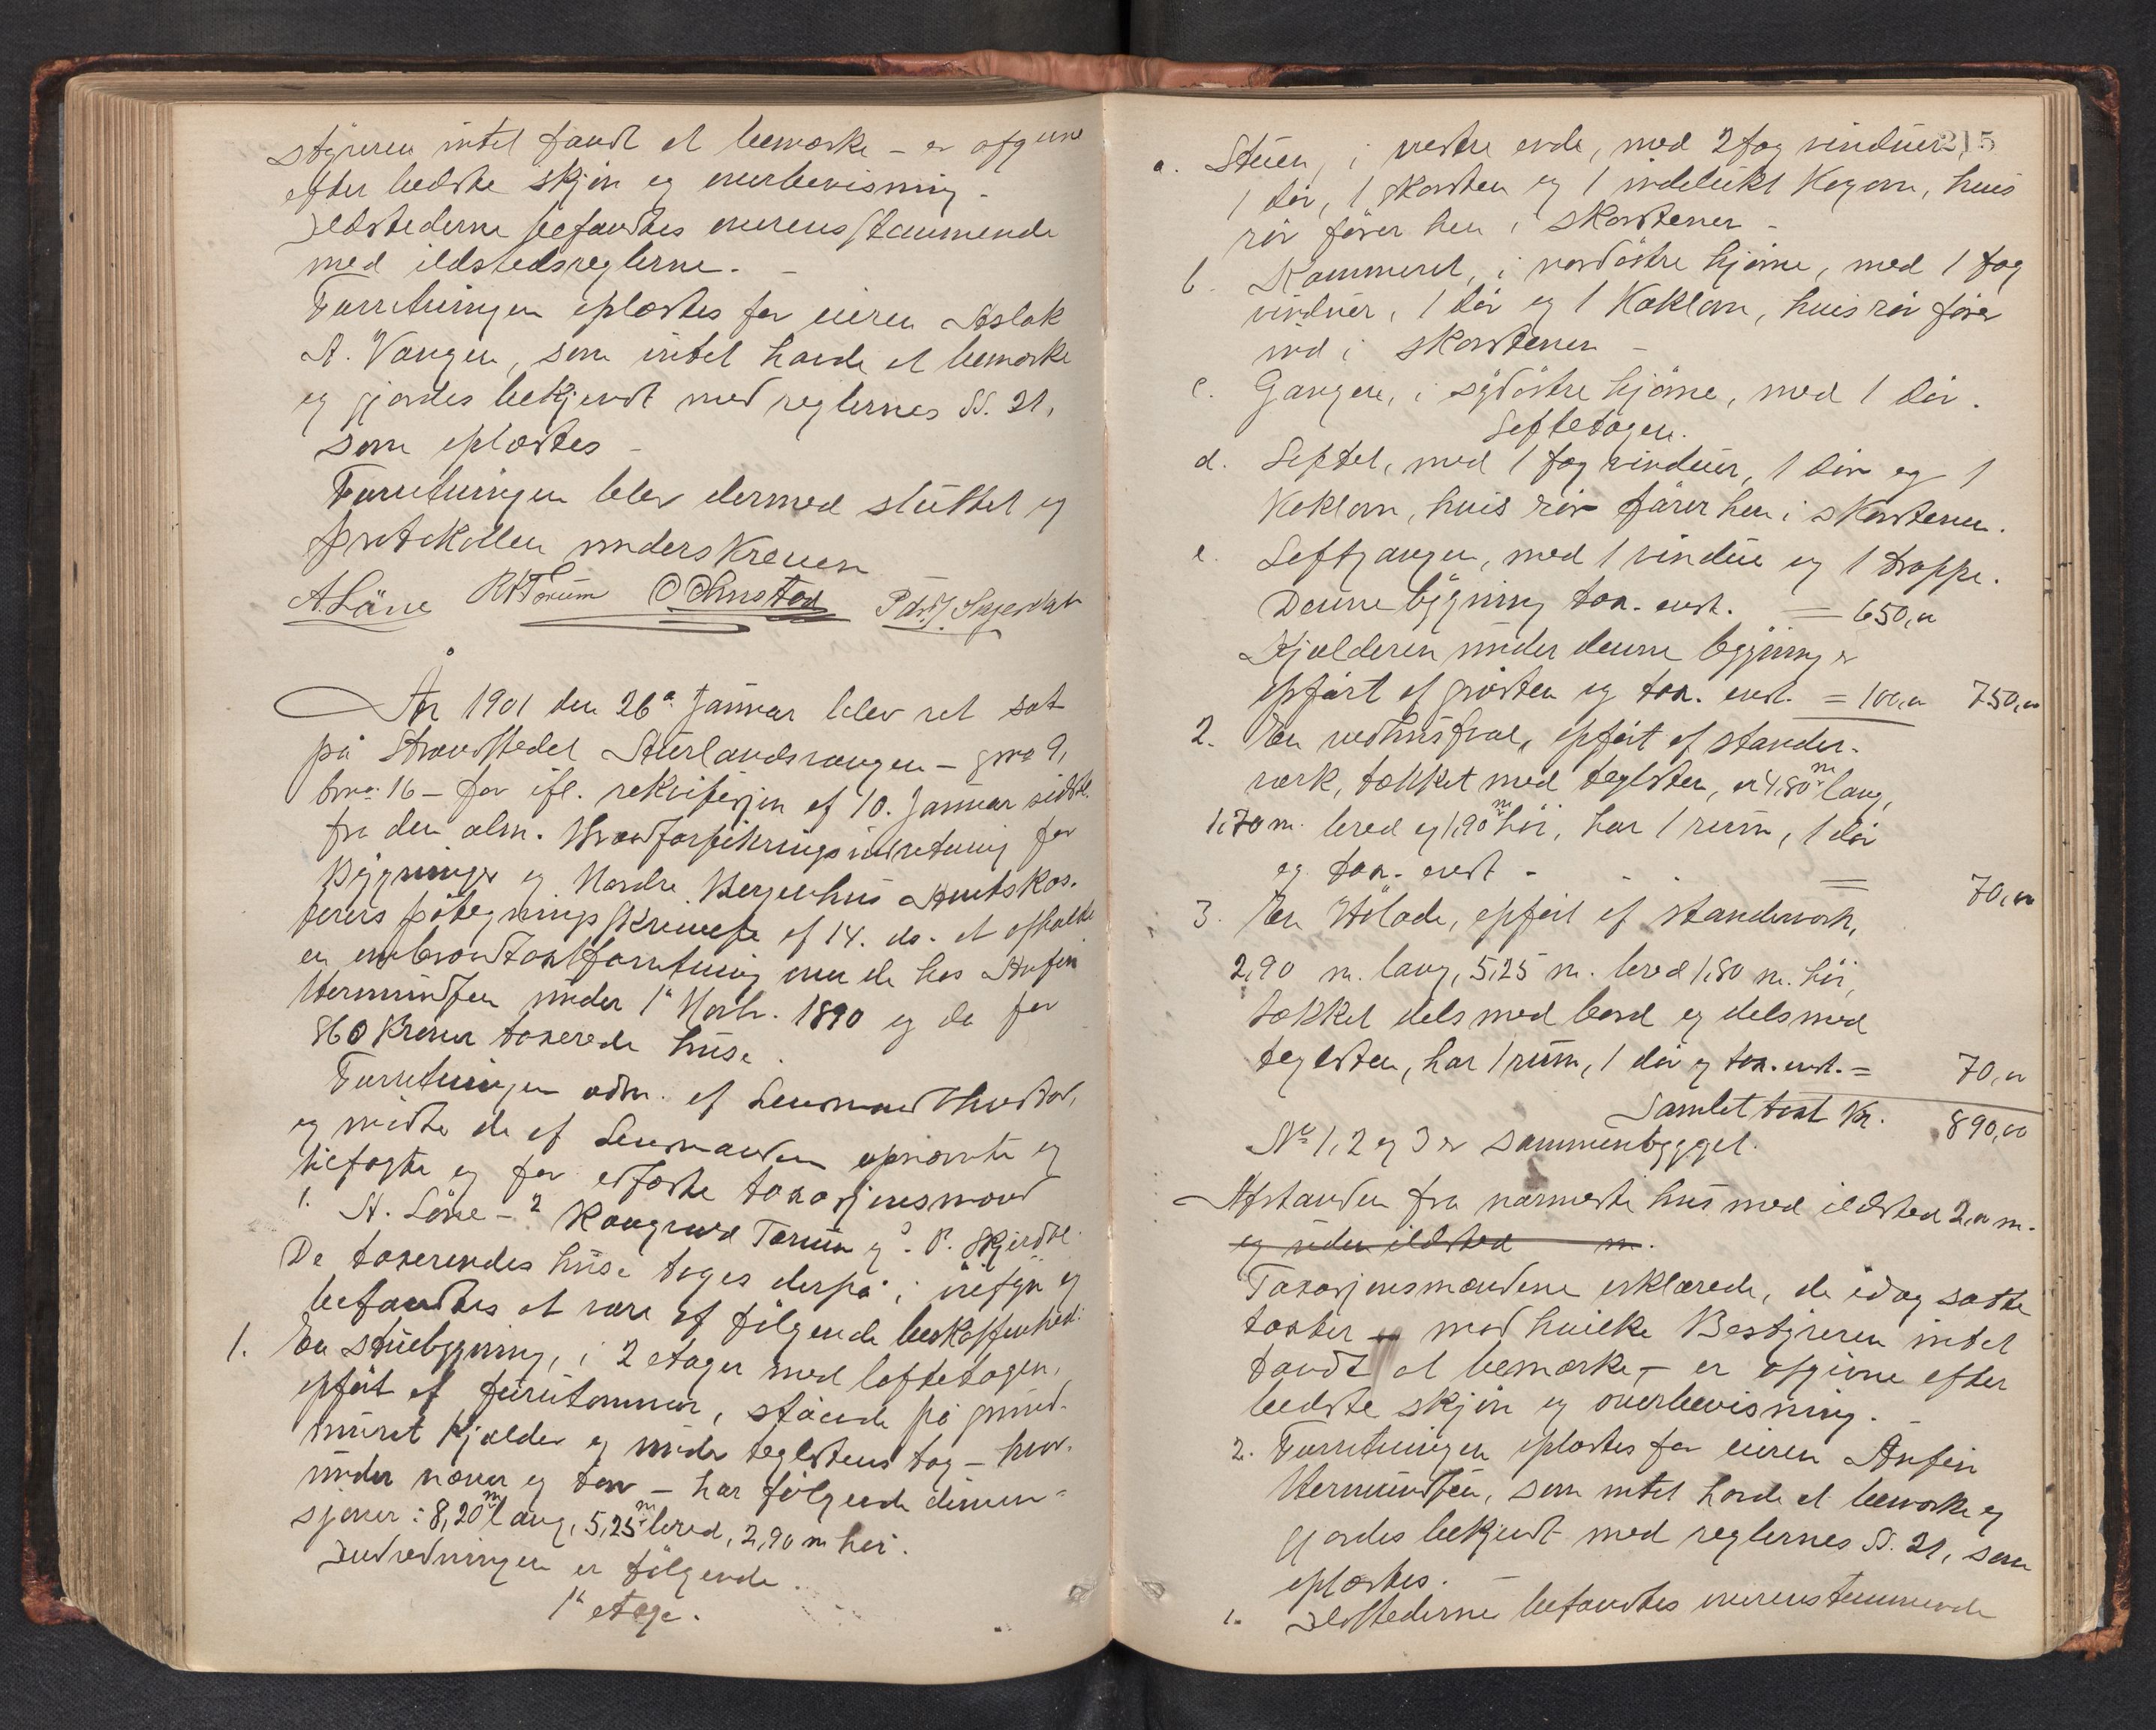 styreren intet fandt at bemærke – er afgivne
efter bedste skjøn og overbevisning –
Ildstederne befandtes overensstemmende
med ildstedsreglerne. –
Forretningen oplæstes for eieren Aslak
A. Vangen, som intet havde at bemærke
og gjordes bekjendt med reglernes §§. 21,
som oplæstes –
Forretningen blev dermed sluttet og
protokollen underskreven
A Låne RKTorum OOhnstad
År 1901 den 26de Januar blev ret sat
på Strandstedet Aurlandsvangen – gno 9,
bno. 16 – for ifl. rekvisisjon af 10. Januar sidstl.
fra den alm. Brandforsikringsindretning for
Bygninger og Nordre Bergenhus Amtskas-
serers påtegningsskrivelse af 14. ds. at afholde
en ombrandtaxtforretning over de hos Anfin
Vermundsen under 1ste Novbr. 1890 og da for
860 Kroner taxerede huse.
Forretningen adm. af Lensmand Ohnstad,
og mødte de af Lensmanden opnævnte og
tilsagte og før edfæste taxasjonsmænd
1. A. Låne – 2 Rongnald Torum og 3. P. Skjerdal.
De taxerendes huse toges derpå i øiesyn og
befandtes at være af følgende beskaffenhed:
1. En stuebygning, i 2 etager med loftetagen,
opført af furutømmer, stående på grund-
muret kjælder og under teglstens tag – hvor-
under næver og træ – har følgende dimen-
sjoner: 8,20 m lang, 5,25 m bred, 2,90 m høi.
Indredningen er følgende.
1ste etage.
215
a. Stuen, i vestre ende, med 2 fag vinduer,
1 dør, 1 skorsten og 1 indelukt Kogovn, hvis
rør fører hen i skorstenen –
b. Kammeret, i nordøstre hjørne, med 1 fag
vinduer, 1 dør og 1 Kakkelovn, hvis rør fører
ind i skorstenen –
c. Gangen, i sydøstre hjørne, med 1 dør.
Loftetagen.
d. Loftet, med 1 fag vinduer, 1 dør og 1
Kaklovn, hvis rør fører hen i skorstenen.
e. Loftgangen, med 1 vindue og 1 trappe.
Denne bygning tax. ansl. = 650,00
Kjælderen under denne bygning er
opført af gråsten og tax. ansl. = 100,00 750,00
2. En vedhussval, opført af stander-
værk, tækket med teglsten, er 4,80 m lang,
1,70 m. bred og 1,90 m høi, har 1 rum, 1 dør
og tax. ansl. – = 70,00
3. En Hølade, opført af standerværk,
2,90 m. lang, 5,25 m. bred 1,80 m. høi,
tækket dels med bord og dels med
teglsten, har 1 rum, 1 dør og tax. ansl. = 70,00
Samlet taxt Kr. 890,00
No 1, 2 og 3 er sammenbygget.
Afstanden fra nærmeste hus med ildsted 2,00 m.
og uden ildsted m.
Taxasjonsmændene erklærede, de idag satte
taxter – mod hvilke Bestyreren intet
fandt at bemærke, – er afgivne efter
bedste skjøn og overbevisning. –
2. Forretningen oplæstes for eieren Anfin
Vermundsen, som intet havde at bemærke og
gjordes bekjendt med reglernes §§. 21, som
oplæstes. –
1. Ildstederne befandtes overenstemmende